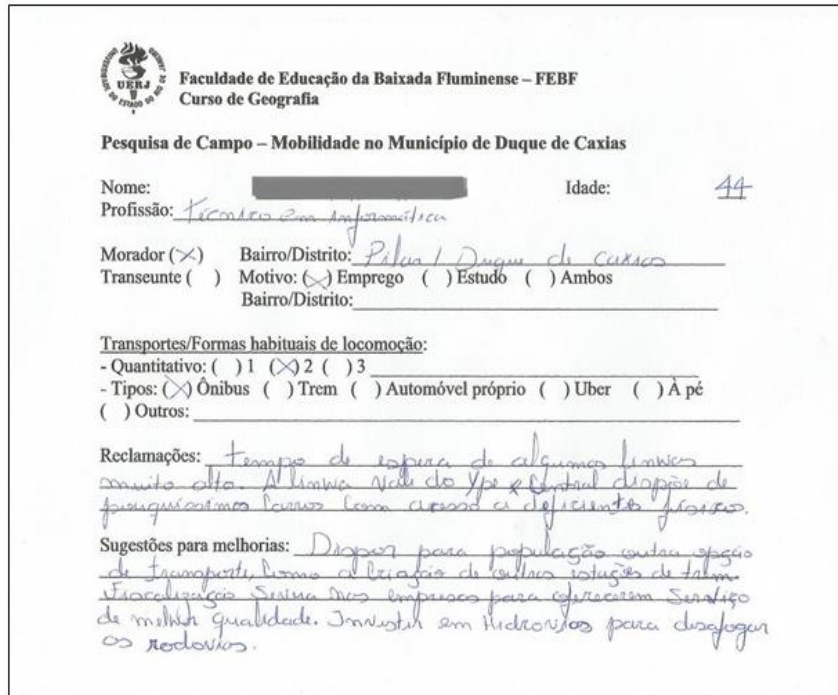 UNIVERSIDADE DO ESTADO DO RIO DE JANEIRO
UERJ
Faculdade de Educação da Baixada Fluminense – FEBF
Curso de Geografia
Pesquisa de Campo – Mobilidade no Município de Duque de Caxias
Nome: Idade: 44
Profissão: Técnico em informática
Morador (X) Bairro/Distrito: Pilar / Duque de Caxias
Transeunte ( ) Motivo: (X) Emprego ( ) Estudo ( ) Ambos
Bairro/Distrito:
Transportes/Formas habituais de locomoção:
- Quantitativo: ( ) 1 (X) 2 ( ) 3
- Tipos: (X) Ônibus ( ) Trem ( ) Automóvel próprio ( ) Uber ( ) À pé
( ) Outros:
Reclamações: tempo de espera de algumas linhas
muito alto. A linha Vale do Ype x Central dispõe de
pouquíssimos carros com acesso a deficientes físicos.
Sugestões para melhorias: Dispor para população outra opção
de transporte, como a criação de outras estações de trem.
Fiscalização Severa nas empresas para oferecerem Serviço
de melhor qualidade. Investir em Hidrovias para desafogar
as rodovias.